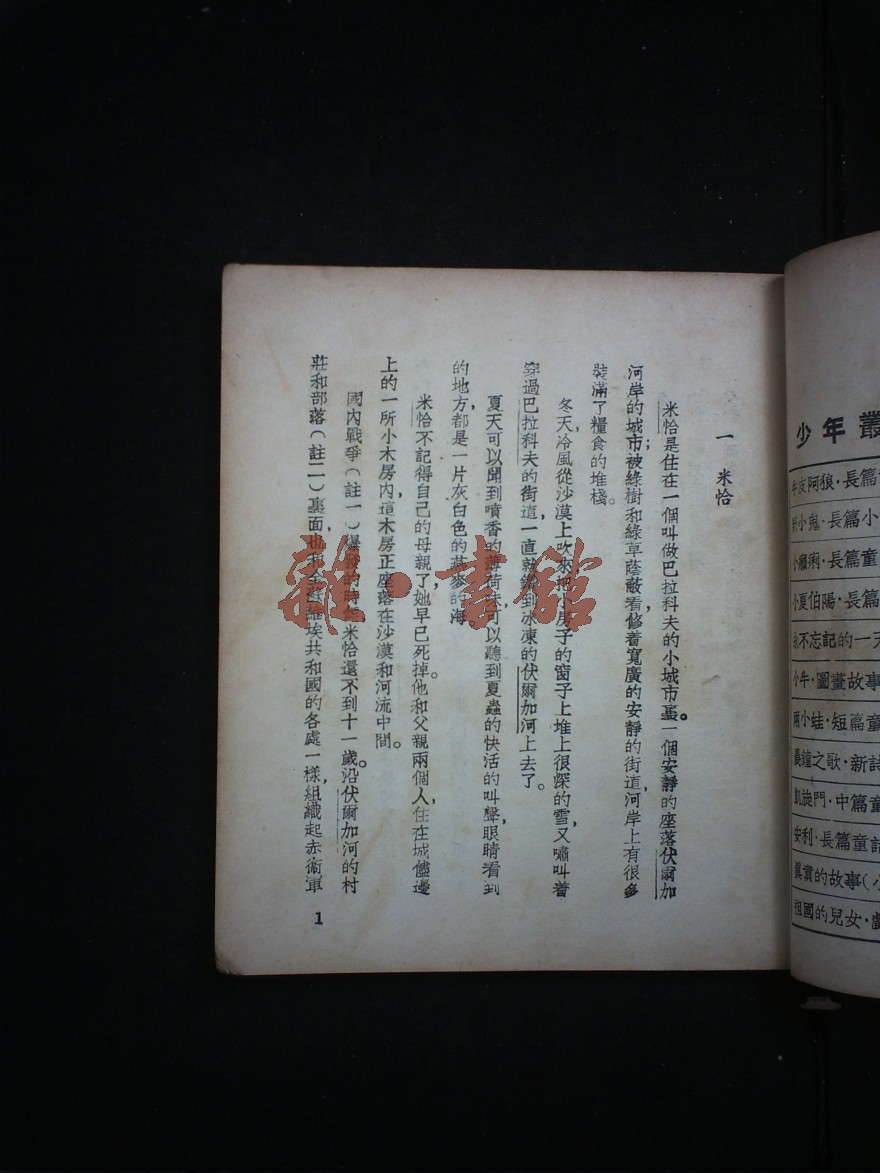 少年叢
阿狼·長篇童
小鬼·長篇小
小癩痢·長篇童
小夏伯陽·長篇
永不忘記的一天
小牛·圖畫故事
兩小蛙·短篇童
晨鐘之歌·新詩
凱旋門·中篇童
安利·長篇童話
眞實的故事(小
祖國的兒女·戲
一 米恰
米恰是住在一個叫做巴拉科夫的小城市裏。一個安靜的座落伏爾加
河岸的城市;被綠樹和綠草蔭蔽着,修着寬廣的安靜的街道,河岸上有很多
裝滿了糧食的堆棧。
冬天,冷風從沙漠上吹來,把小房子的窗子上堆上很深的雪,又嘯叫着
穿過巴拉科夫的街道,一直就鑽到冰凍的伏爾加河上去了。
夏天可以聞到噴香的薄荷味,可以聽到夏蟲的快活的叫聲,眼睛看到
的地方,都是一片灰白色的燕麥的海。
米恰不記得自己的母親了,她早已死掉。他和父親兩個人,住在城儘邊
上的一所小木房內,這木房正座落在沙漠和河流中間。
國內戰爭(註一)爆發的時候,米恰還不到十一歲。沿伏爾加河的村
莊和部落(註二)裏面,也和全蘇維埃共和國的各處一樣,組織起赤衛軍
1
雜·書館